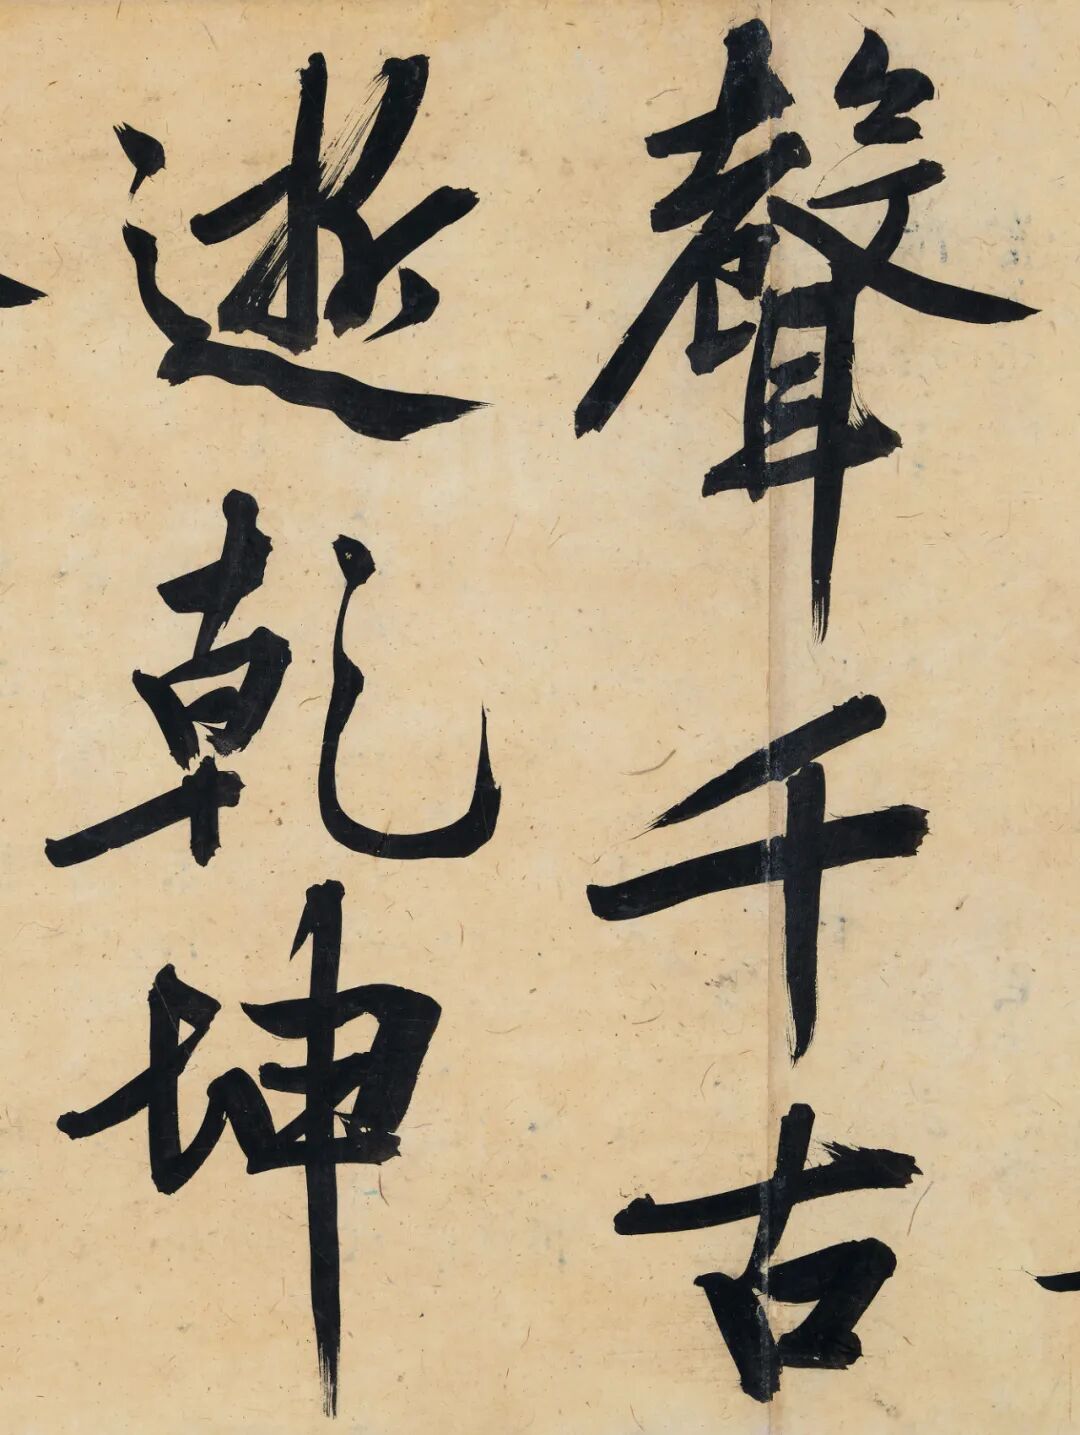 聲千古
逝乾坤